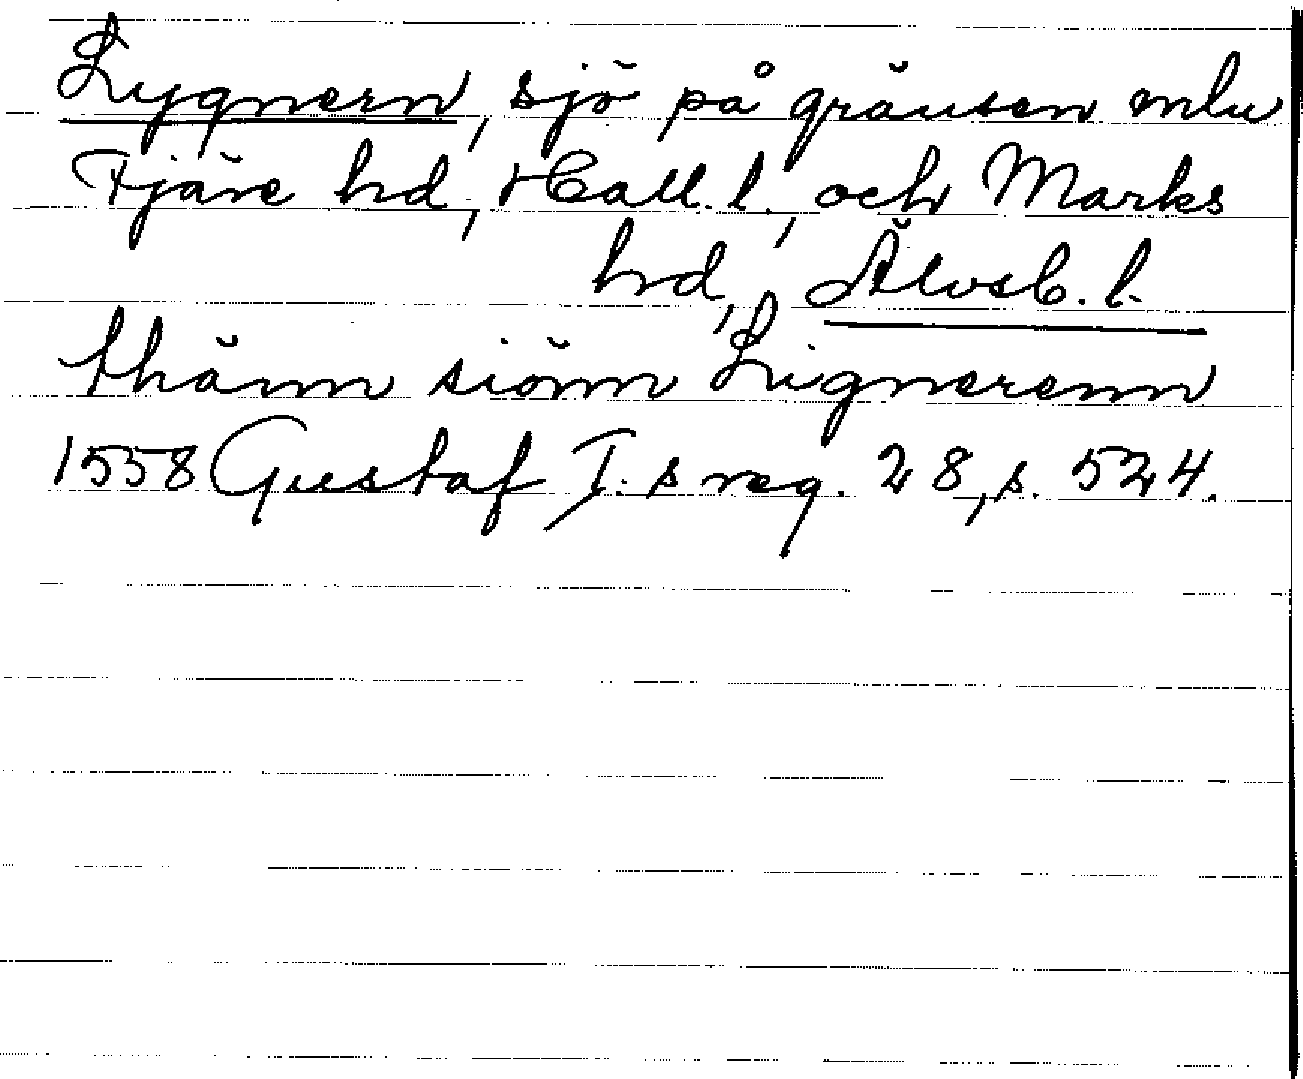 Lygnern, sjö på gränsen mlu
Fjäre hd, Hall. l., och Marks
hd, Älvsb. l.
thänn siönn Lignerenn
1558 Gustaf I:s reg. 28, s. 524.